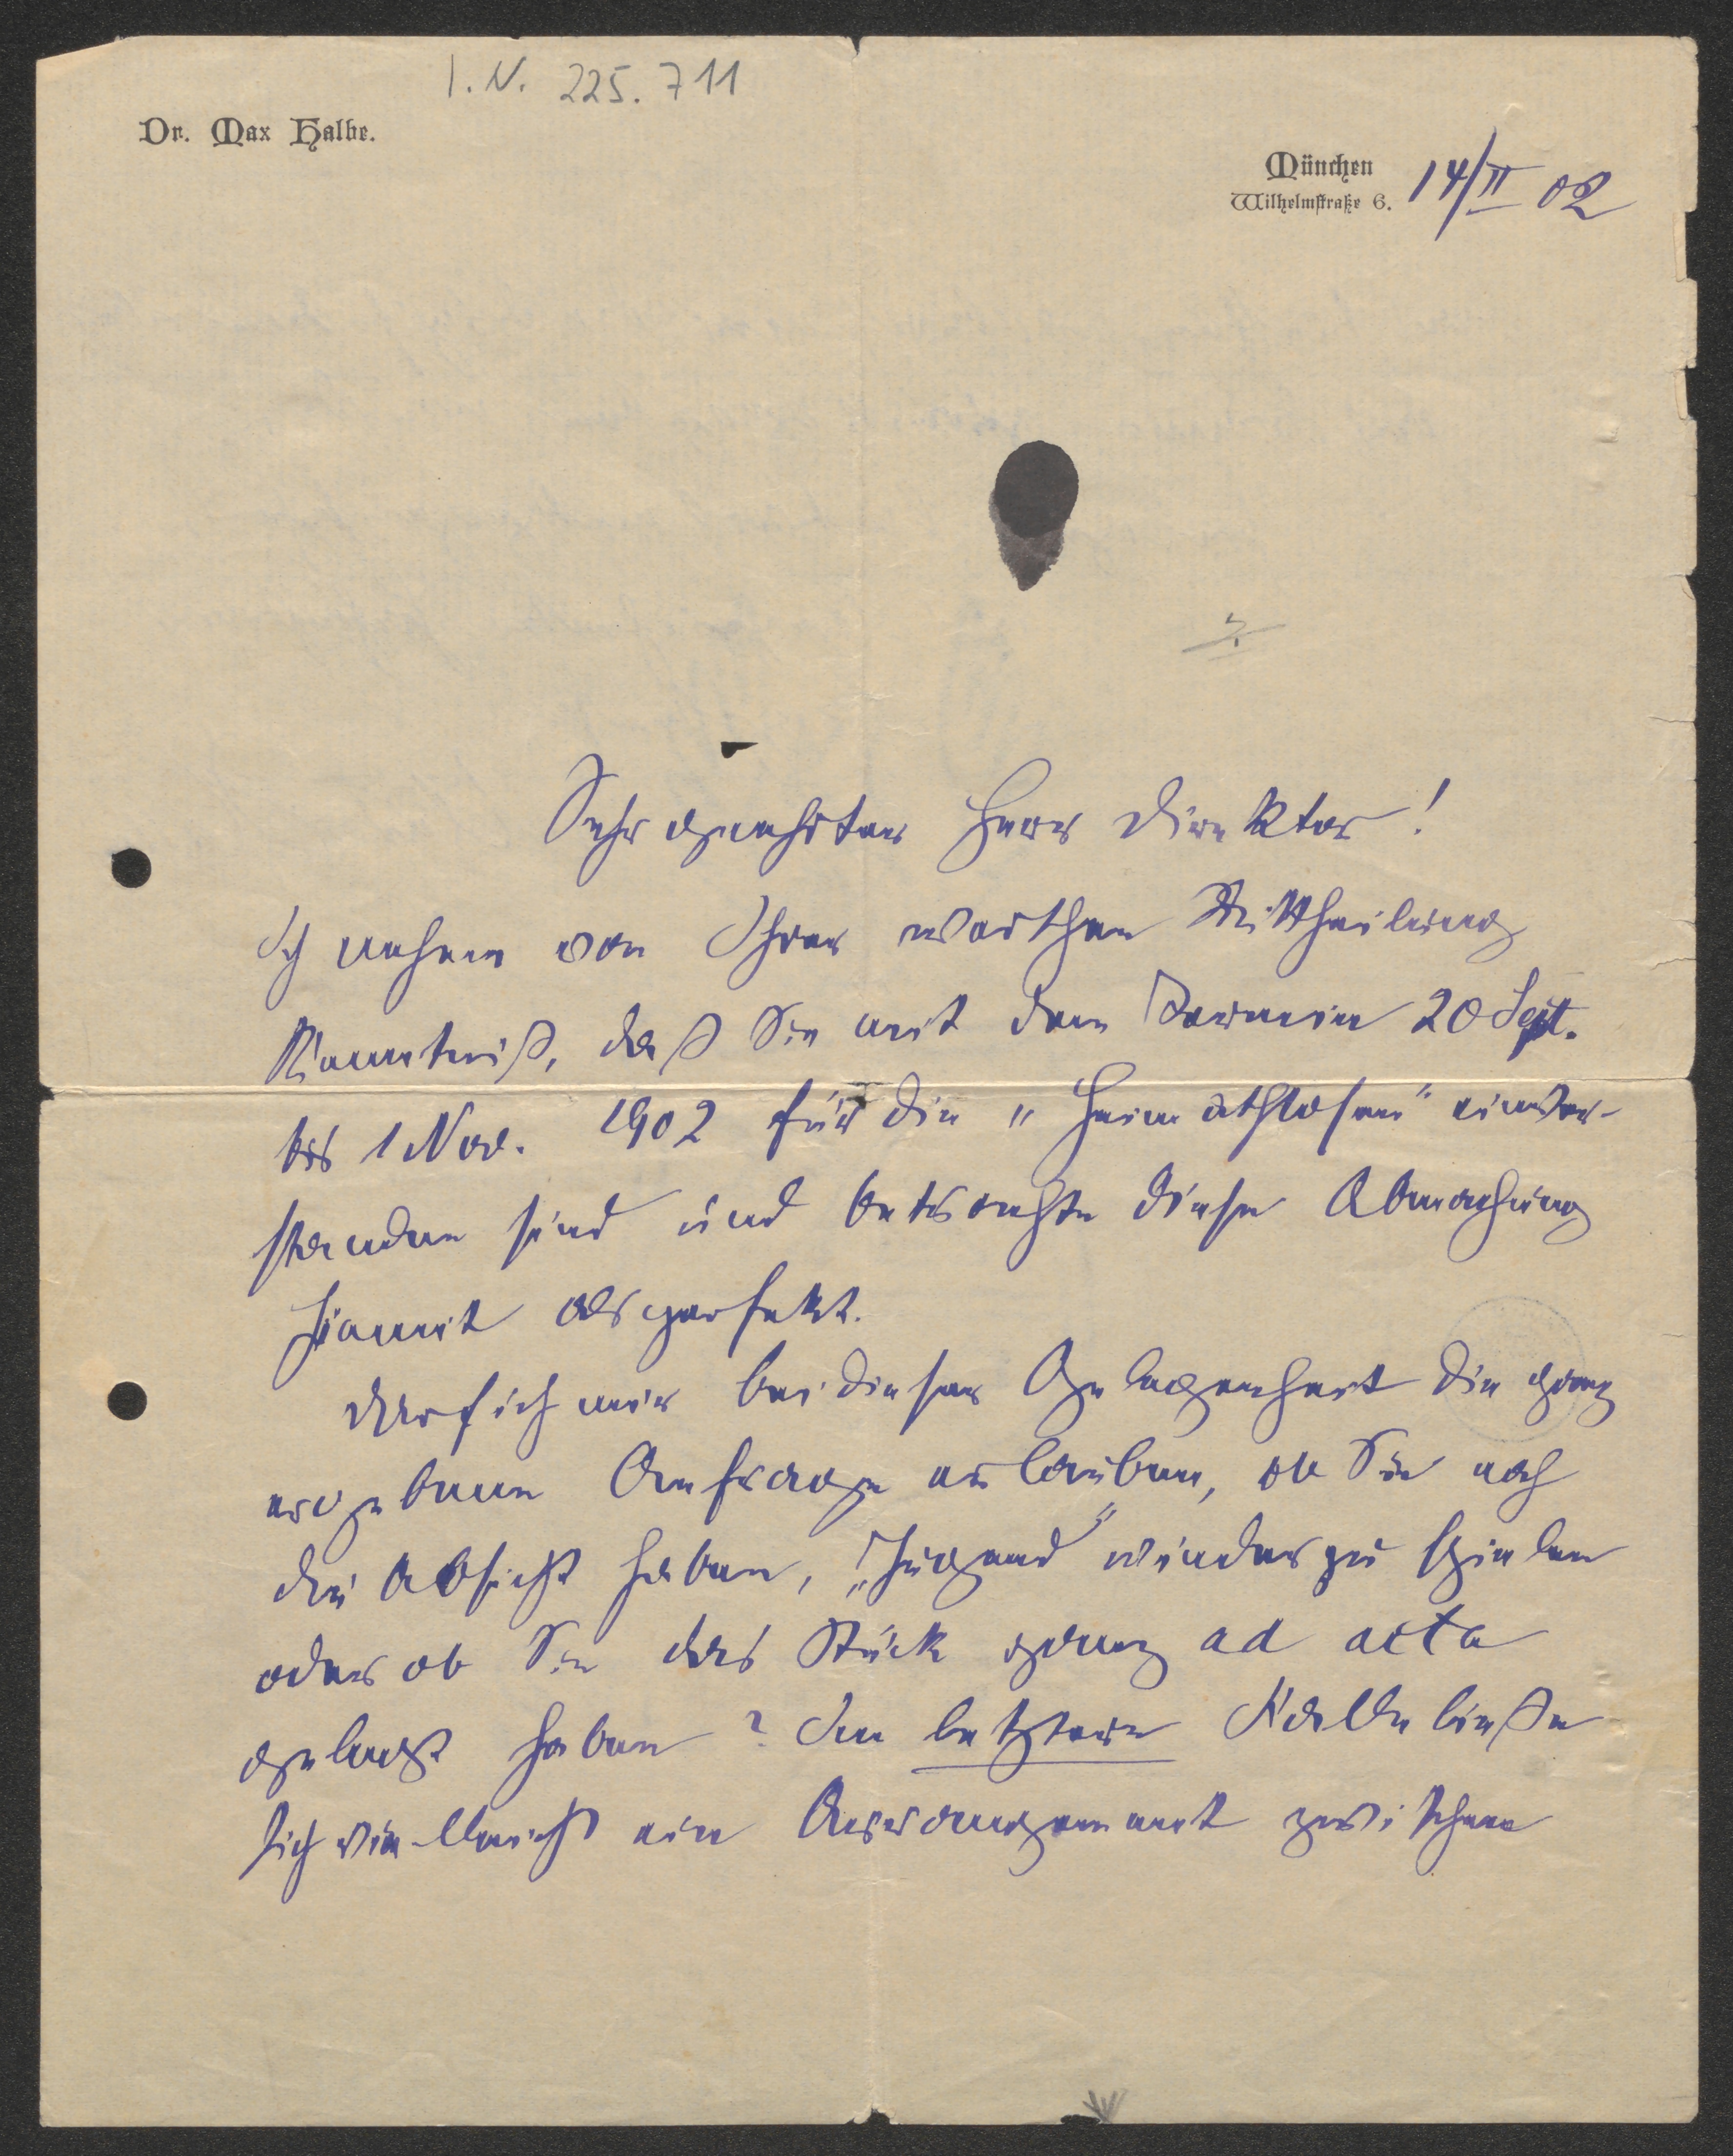 I.N. 225.711
Dr. Max Halbe.
München
Wilhelmstraße 6. 14/II 02
Sehr geehrter Herr Direktor!
Ich nehme von Ihrer werthen Mittheilung
Kenntniß, daß Sie mit dem Termin 20 Sept.
bis 1 Nov. 1902 für die "Heimathlosen" einver-
standen sind und betrachte diese Abmachung
hiermit als perfekt.
Darf ich mir bei dieser Gelegenheit die ganz
ergebene Anfrage erlauben, ob Sie noch
die Absicht haben, „Jugend“ wieder zu spielen
oder ob Sie das Stück ganz ad acta
gelegt haben? Im letztern Falle ließe
sich vielleicht ein Arrangement zwischen